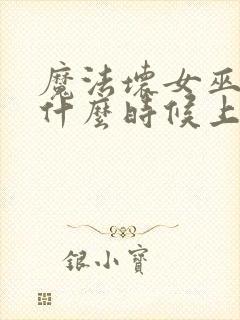 魔法壞女巫
什麼時候上
銀小寶